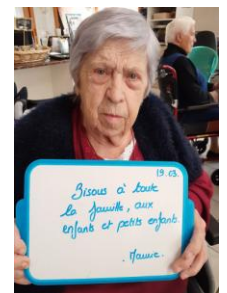 19.03.
Bisous à toute
la famille, aux
enfants et petits enfants.
. Mamie.